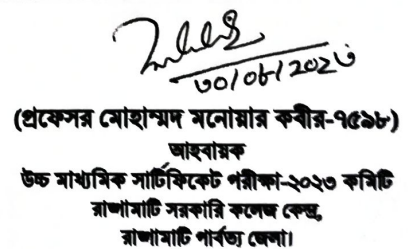 ৩০/০৮/২০২৩
(প্রফেসর মোহাম্মদ মনোয়ার কবীর-৭৫৯৮)
আহবায়ক
উচ্চ মাধ্যমিক সার্টিফিকেট পরীক্ষা-২০২৩ কমিটি
রাঙ্গামাটি সরকারি কলেজ কেন্দ্র,
রাঙ্গামাটি পার্বত্য জেলা।